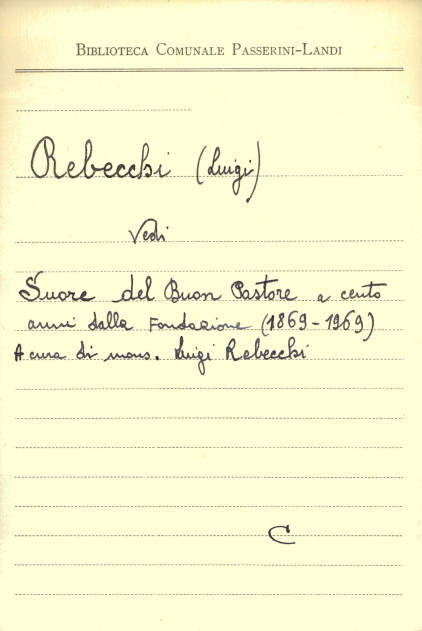 Biblioteca Comunale Passerini-Landi
Rebecchi (Luigi)
Vedi
Suore del Buon Pastore a cento
anni dalla Fondazione (1869-1969)
A cura di mons. Luigi Rebecchi
C